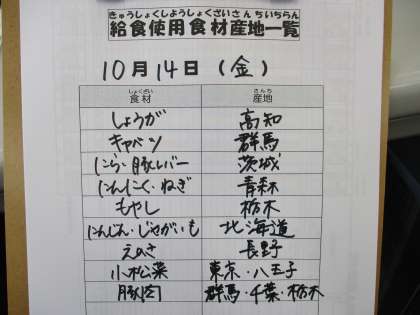 きゅうしょくしようしょくざいさんちいちらん
給食使用食材産地一覧
10月14日（金）
しょくざい さんち
食材 産地
しょうが 高知
キャベツ 群馬
にら・豚レバー 茨城
にんにく・ねぎ 青森
もやし 栃木
にんじん・じゃがいも 北海道
えのき 長野
小松菜 東京・八王子
豚肉 群馬・千葉・栃木